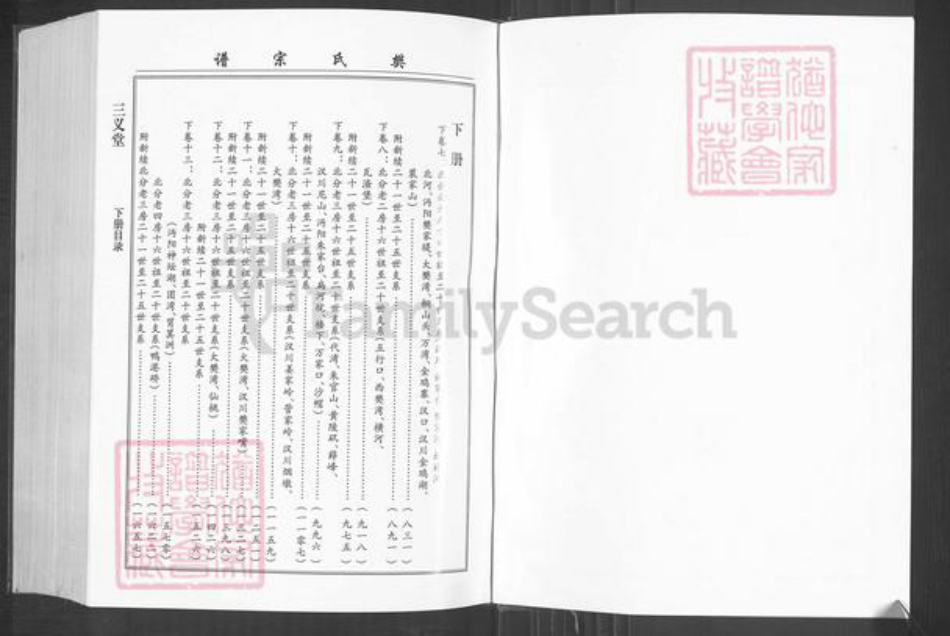 樊氏宗谱
下册
下卷七、
北河、沔阳樊家堤、大樊湾、桐山头、万湾、金鸡寨、汉口、汉川金鸡湖、
裴家山）……（八三一）
附新续二十一世至二十五世支系……（八九一）
下卷八、北分老二房十六世祖至二十世支系（五行口、西樊湾、横河、
瓦渣堡）……（九一八）
附新续二十一世至二十五世支系……（九七五）
下卷九、北分老三房十六世祖至二十世支系（代湾、朱官山、黄陵矶、薛峰、
汉川尼山、沔阳朱家台、楼下、万家口、沙帽）……（九九六）
附新续二十一世至二十五世支系……（一一零七）
下卷十、北分老三房十六世祖至二十世支系（汉川姜家岭、晋家岭、汉川烟墩、
大樊湾）……（一一五九）
附新续二十一世至二十五世支系……（一二五一）
下卷十一、北分老三房十六世祖至二十世支系（大樊湾、汉川樊家嘴）（一三二七）
附新续二十一世至二十五世支系……（一三九八）
下卷十二、北分老三房十六世祖至二十世支系（大樊湾、仙桃）……（一四二六）
附新续二十一世至二十五世支系……（一五二六）
下卷十三、北分老三房十六世祖至二十世支系
（沔阳神绘湖、团湾、贺莫洲）……（一五七零）
北分老四房十六世祖至二十世支系（鸭港硚）……（一六二二）
附新续北分老三房二十一世至二十五世支系……（一六五七）
三义堂
下册目录
FamilySearch
猶他家
譜學會
收藏
猶他家
譜學會
收藏